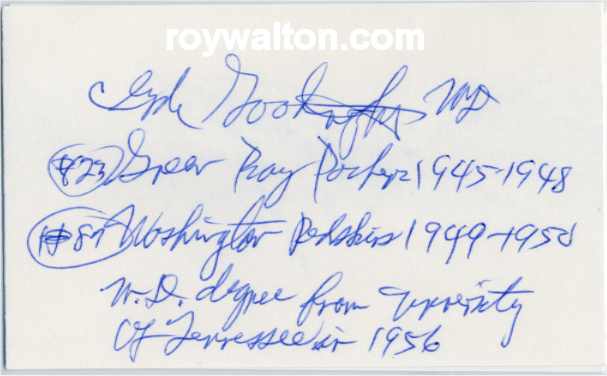 roywalton.com
Clyde Goodnight MD
#23 Green Bay Packers 1945-1948
#81 Washington Redskins 1949-1950
M.D. degree from University
Of Tennessee in 1956